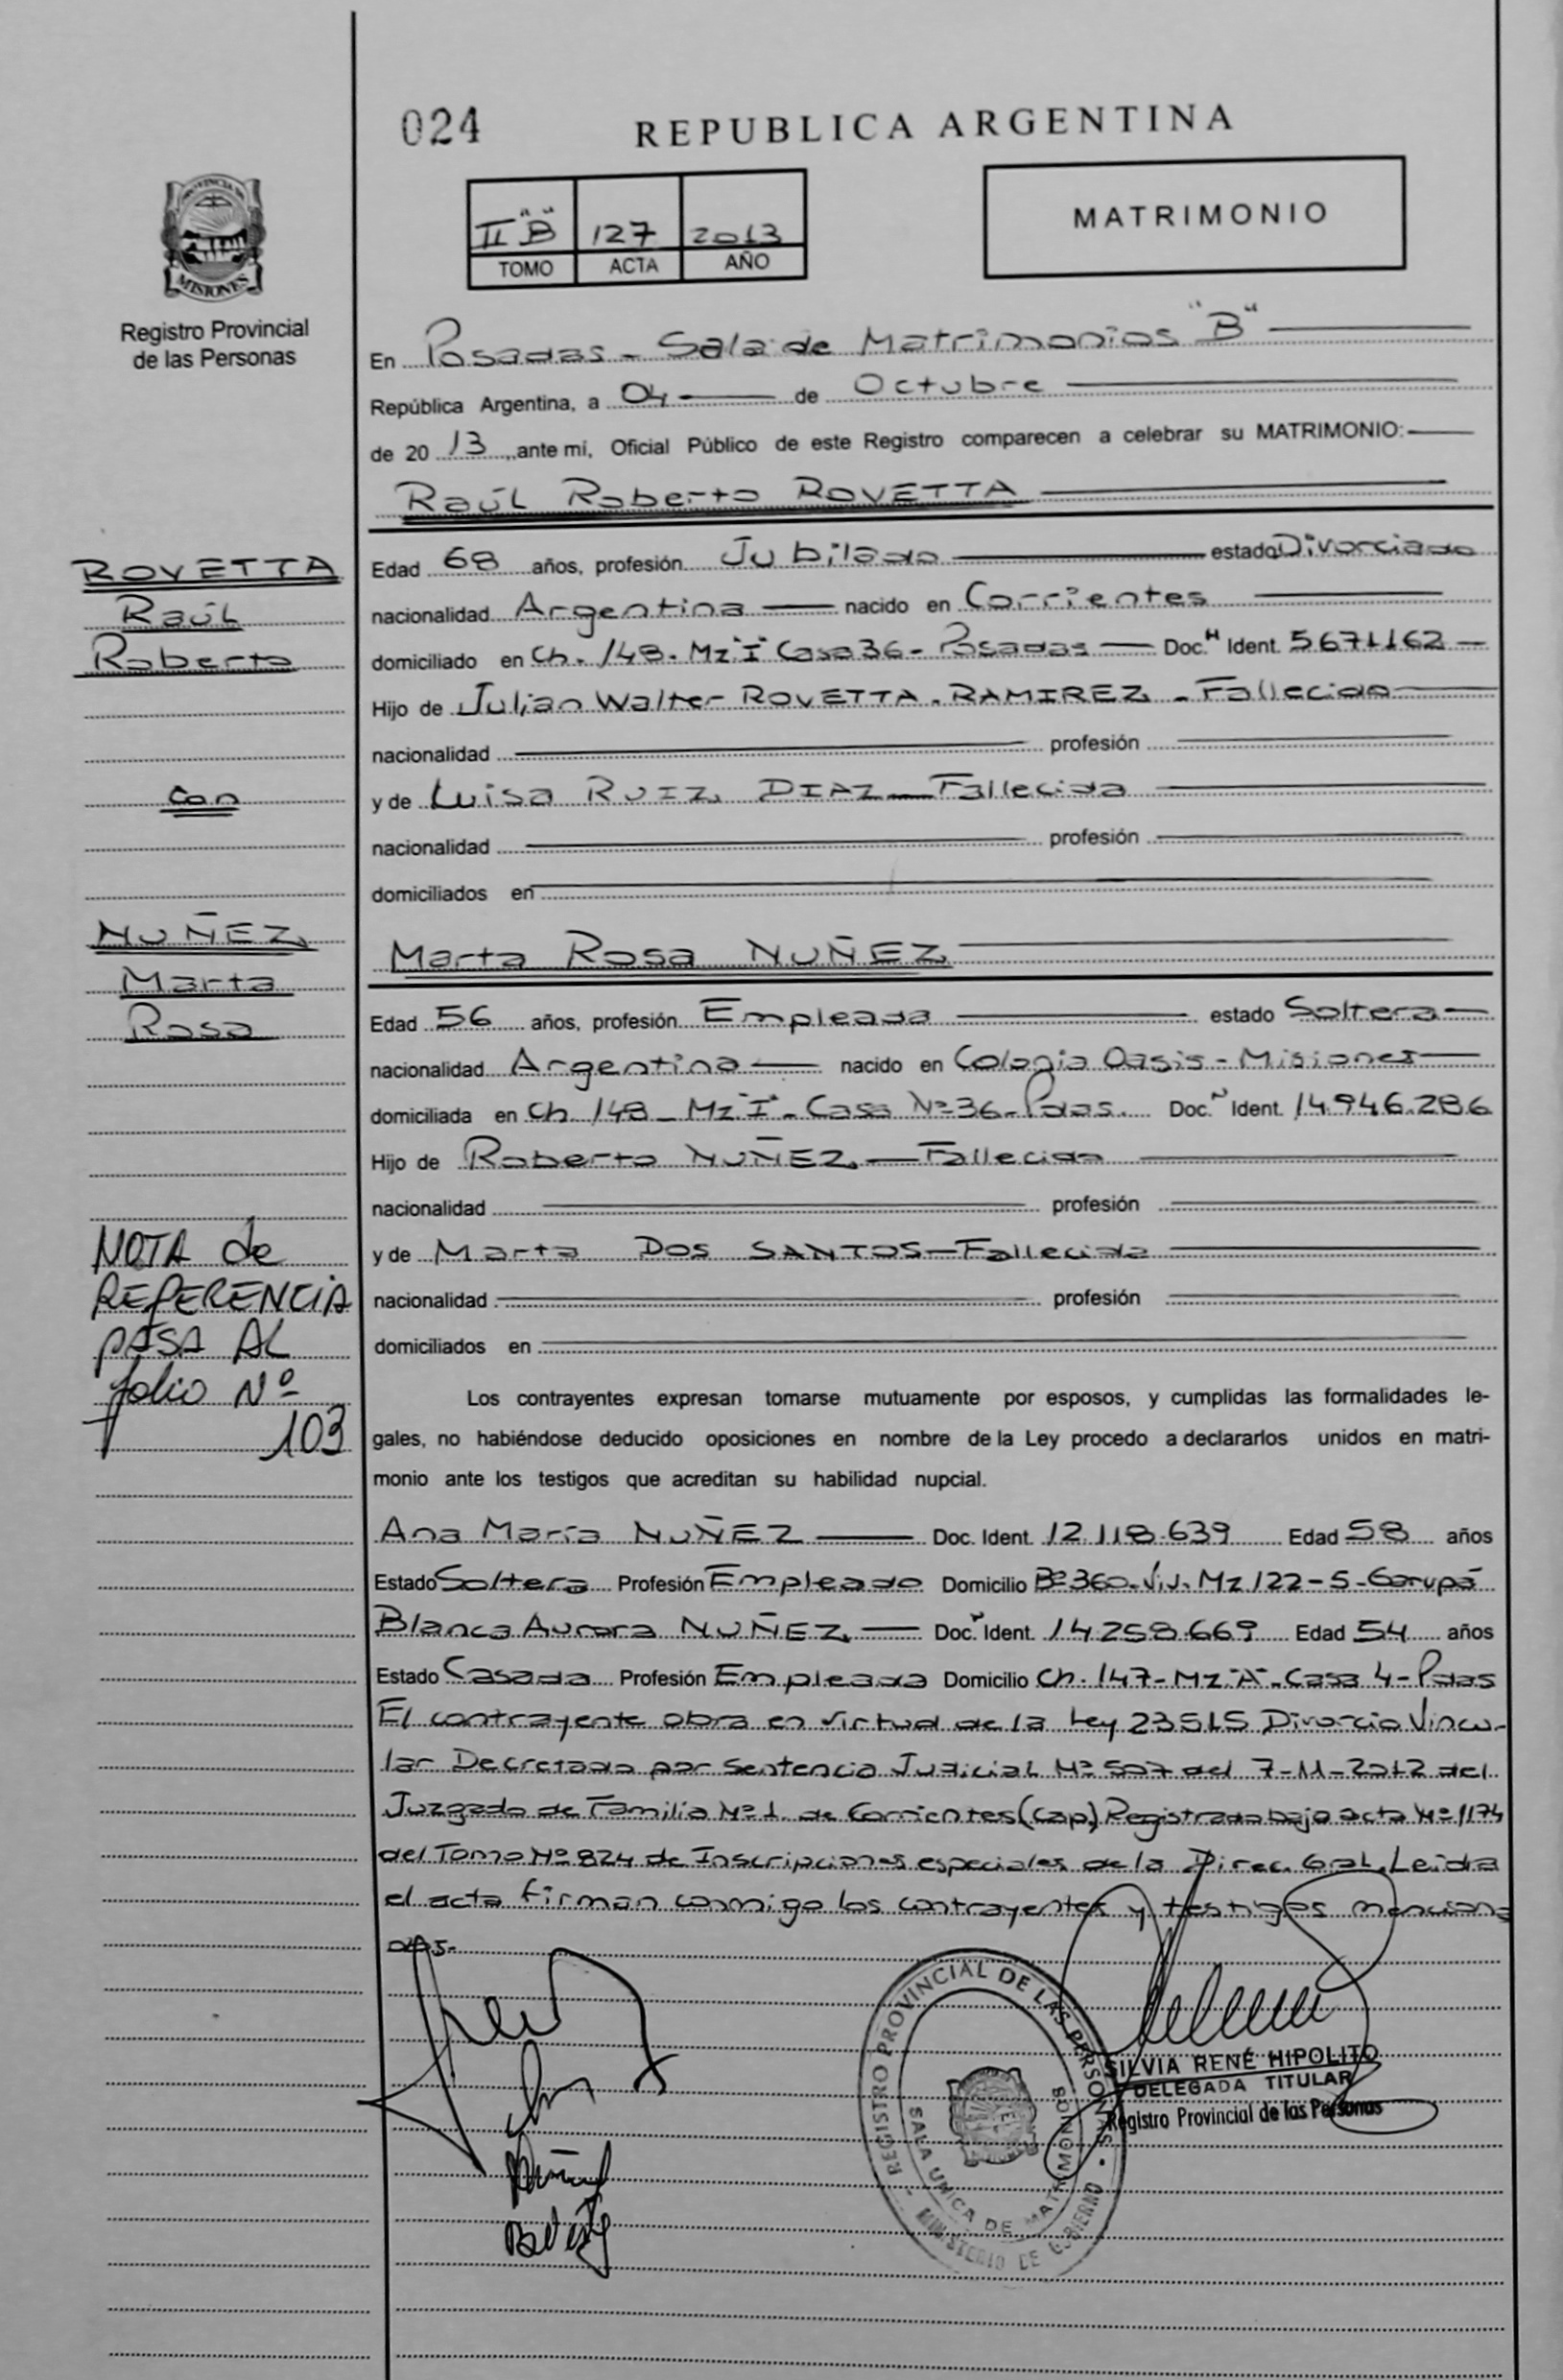 024
REPUBLICA ARGENTINA
PROVINCIA DE
MISIONES
Registro Provincial
de las Personas
II "B" 127 2013
TOMO ACTA AÑO
MATRIMONIO
En Posadas - Sala de Matrimonios "B"
República Argentina, a 04 de Octubre
de 20 13, ante mí, Oficial Público de este Registro comparecen a celebrar su MATRIMONIO:
Raúl Roberto ROVETTA
ROVETTA
Raúl
Roberto
con
NUÑEZ
Marta
Rosa
NOTA de
REFERENCIA
PASA AL
folio Nº
103
Edad 68 años, profesión Jubilado estado Divorciado
nacionalidad Argentina nacido en Corrientes
domiciliado en Ch. 148. Mz "I" Casa 36 - Posadas Doc. N Ident. 5671162
Hijo de Julian Walter ROVETTA. RAMIREZ - Fallecido
nacionalidad profesión
y de Luisa RUIZ DIAZ - Fallecida
nacionalidad profesión
domiciliados en
Marta Rosa NUÑEZ
Edad 56 años, profesión Empleada estado Soltera
nacionalidad Argentina nacido en Colonia Oasis - Misiones
domiciliada en Ch. 148 - Mz "I" - Casa Nº 36 - Pdas. Doc. N Ident. 14.946.286
Hijo de Roberto NUÑEZ. - Fallecido
nacionalidad profesión
y de Marta DOS SANTOS - Fallecida
nacionalidad profesión
domiciliados en
Los contrayentes expresan tomarse mutuamente por esposos, y cumplidas las formalidades le-
gales, no habiéndose deducido oposiciones en nombre de la Ley procedo a declararlos unidos en matri-
monio ante los testigos que acreditan su habilidad nupcial.
Ana María NUÑEZ Doc. Ident. 12.118.639 Edad 58 años
Estado Soltera Profesión Empleado Domicilio Bº 360 - Viv. Mz 122 - 5 - Garupá
Blanca Aurora NUÑEZ Doc. N Ident. 14.258.669 Edad 54 años
Estado Casada Profesión Empleada Domicilio Ch. 147 - Mz "A" - Casa 4 - Pdas
El contrayente obra en virtud de la Ley 23515 Divorcio Vincu-
lar Decretado por Sentencia Judicial Nº 507 del 7-11-2012 del
Juzgado de Familia Nº 1. de Corrientes (Cap) Registrada bajo acta Nº 1174
del Tomo Nº 824 de Inscripciones especiales de la Direc. Gral. Leida
el acta firman conmigo los contrayentes y testigos menciona
dos-
REGISTRO PROVINCIAL DE LAS PERSONAS
SALA UNICA DE MATRIMONIOS
MINISTERIO DE GOBIERNO
SILVIA RENÉ HIPOLITO
DELEGADA TITULAR
Registro Provincial de las Personas